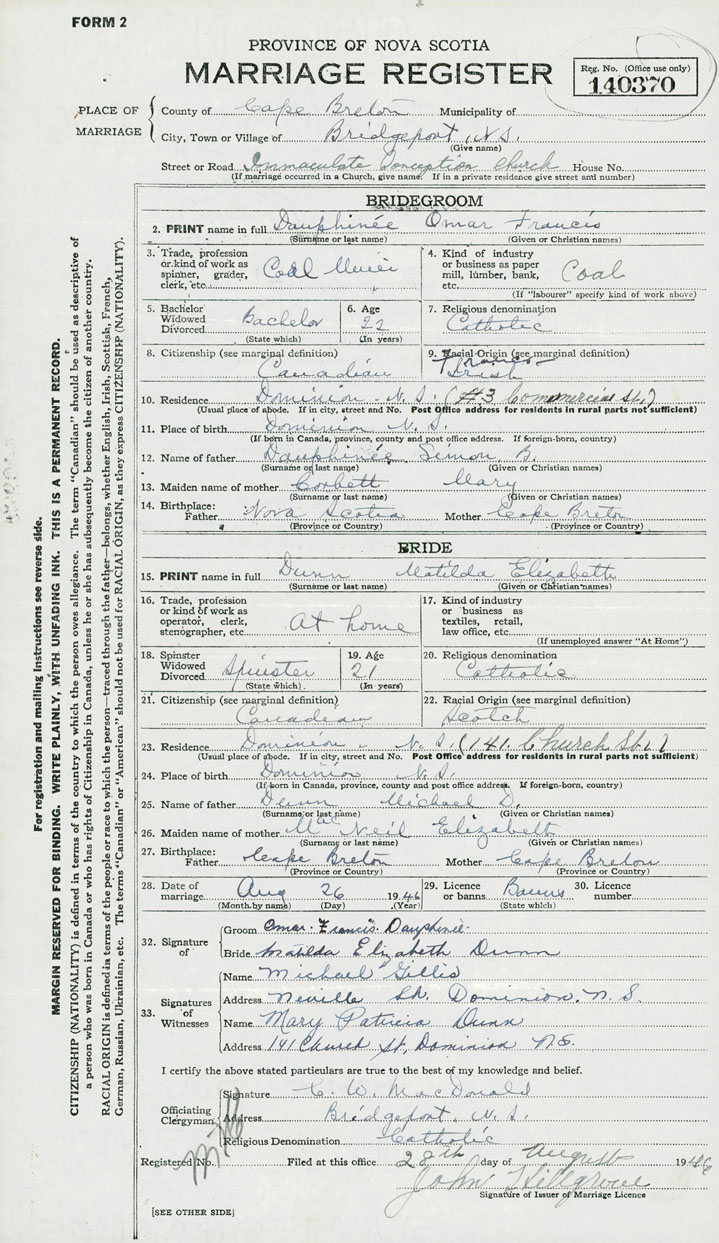 FORM 2
PROVINCE OF NOVA SCOTIA
MARRIAGE REGISTER
Reg. No. (Office use only)
140370
PLACE OF MARRIAGE
County of Cape Breton Municipality of
City, Town or Village of Bridgeport, N.S.
(Give name)
Street or Road Immaculate Conception Church House No.
(If marriage occurred in a Church, give name. If in a private residence give street and number)
BRIDEGROOM
2. PRINT name in full Dauphinée Omar Francis
(Surname or last name) (Given or Christian names)
3. Trade, profession or kind of work as spinner, grader, clerk, etc. Coal Miner
4. Kind of industry or business as paper mill, lumber, bank, etc. Coal
(If "labourer" specify kind of work above)
5. Bachelor Widowed Divorced Bachelor
(State which)
6. Age 22
(In years)
7. Religious denomination
Catholic
8. Citizenship (see marginal definition)
Canadian
9. Racial Origin (see marginal definition)
Irish
10. Residence Dominion - N.S. (#3 Commercial St.)
(Usual place of abode. If in city, street and No. Post Office address for residents in rural parts not sufficient)
11. Place of birth Dominion N.S.
(If born in Canada, province, county and post office address. If foreign-born, country)
12. Name of father Dauphinée Simon B.
(Surname or last name) (Given or Christian names)
13. Maiden name of mother Corbett Mary
(Surname or last name) (Given or Christian names)
14. Birthplace: Father Nova Scotia Mother Cape Breton
(Province or Country) (Province or Country)
BRIDE
15. PRINT name in full Dunn Matilda Elizabeth
(Surname or last name) (Given or Christian names)
16. Trade, profession or kind of work as operator, clerk, stenographer, etc. At home
17. Kind of industry or business as textiles, retail, law office, etc.
(If unemployed answer "At Home")
18. Spinster Widowed Divorced Spinster
(State which)
19. Age 21
(In years)
20. Religious denomination
Catholic
21. Citizenship (see marginal definition)
Canadian
22. Racial Origin (see marginal definition)
Scotch
23. Residence Dominion - N.S. (141 Church St.)
(Usual place of abode. If in city, street and No. Post Office address for residents in rural parts not sufficient)
24. Place of birth Dominion N.S.
(If born in Canada, province, county and post office address. If foreign-born, country)
25. Name of father Dunn Michael D.
(Surname or last name) (Given or Christian names)
26. Maiden name of mother MacNeil Elizabeth
(Surname or last name) (Given or Christian names)
27. Birthplace: Father Cape Breton Mother Cape Breton
(Province or Country) (Province or Country)
28. Date of marriage Aug 26 1946
(Month by name) (Day) (Year)
29. Licence or banns Banns
(State which)
30. Licence number
32. Signature of
Groom Omar Francis Dauphinée
Bride Matilda Elizabeth Dunn
33. Signatures of Witnesses
Name Michael Gillis
Address Neville St. Dominion, N.S.
Name Mary Patricia Dunn
Address 141 Church St, Dominion N.S.
I certify the above stated particulars are true to the best of my knowledge and belief.
Officiating Clergyman
Signature C. W. MacDonald
Address Bridgeport, N.S.
Religious Denomination Catholic
Registered No. Filed at this office 28th day of August 1946
John Hillgrove
Signature of Issuer of Marriage Licence
[SEE OTHER SIDE]
For registration and mailing instructions see reverse side.
MARGIN RESERVED FOR BINDING. WRITE PLAINLY, WITH UNFADING INK. THIS IS A PERMANENT RECORD.
CITIZENSHIP (NATIONALITY) is defined in terms of the country to which the person owes allegiance. The term "Canadian" should be used as descriptive of
a person who was born in Canada or who has rights of Citizenship in Canada, unless he or she has subsequently become the citizen of another country.
RACIAL ORIGIN is defined in terms of the people or race to which the person—traced through the father—belongs, whether English, Irish, Scottish, French,
German, Russian, Ukrainian, etc. The terms "Canadian" or "American" should not be used for RACIAL ORIGIN, as they express CITIZENSHIP (NATIONALITY).